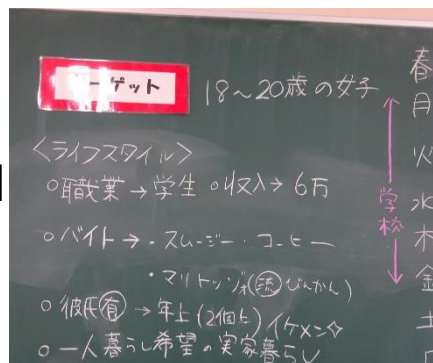 ターゲット 18〜20歳の女子
<ライフスタイル>
○職業→学生 ○収入→6万
○バイト→・スムージー・コーヒー
・マリトッジォ(流 びんかん)
○彼氏有→年上(2個上)イケメン✧
○一人暮らし希望の実家暮らし
学校
春
月
火
水
木
金
土